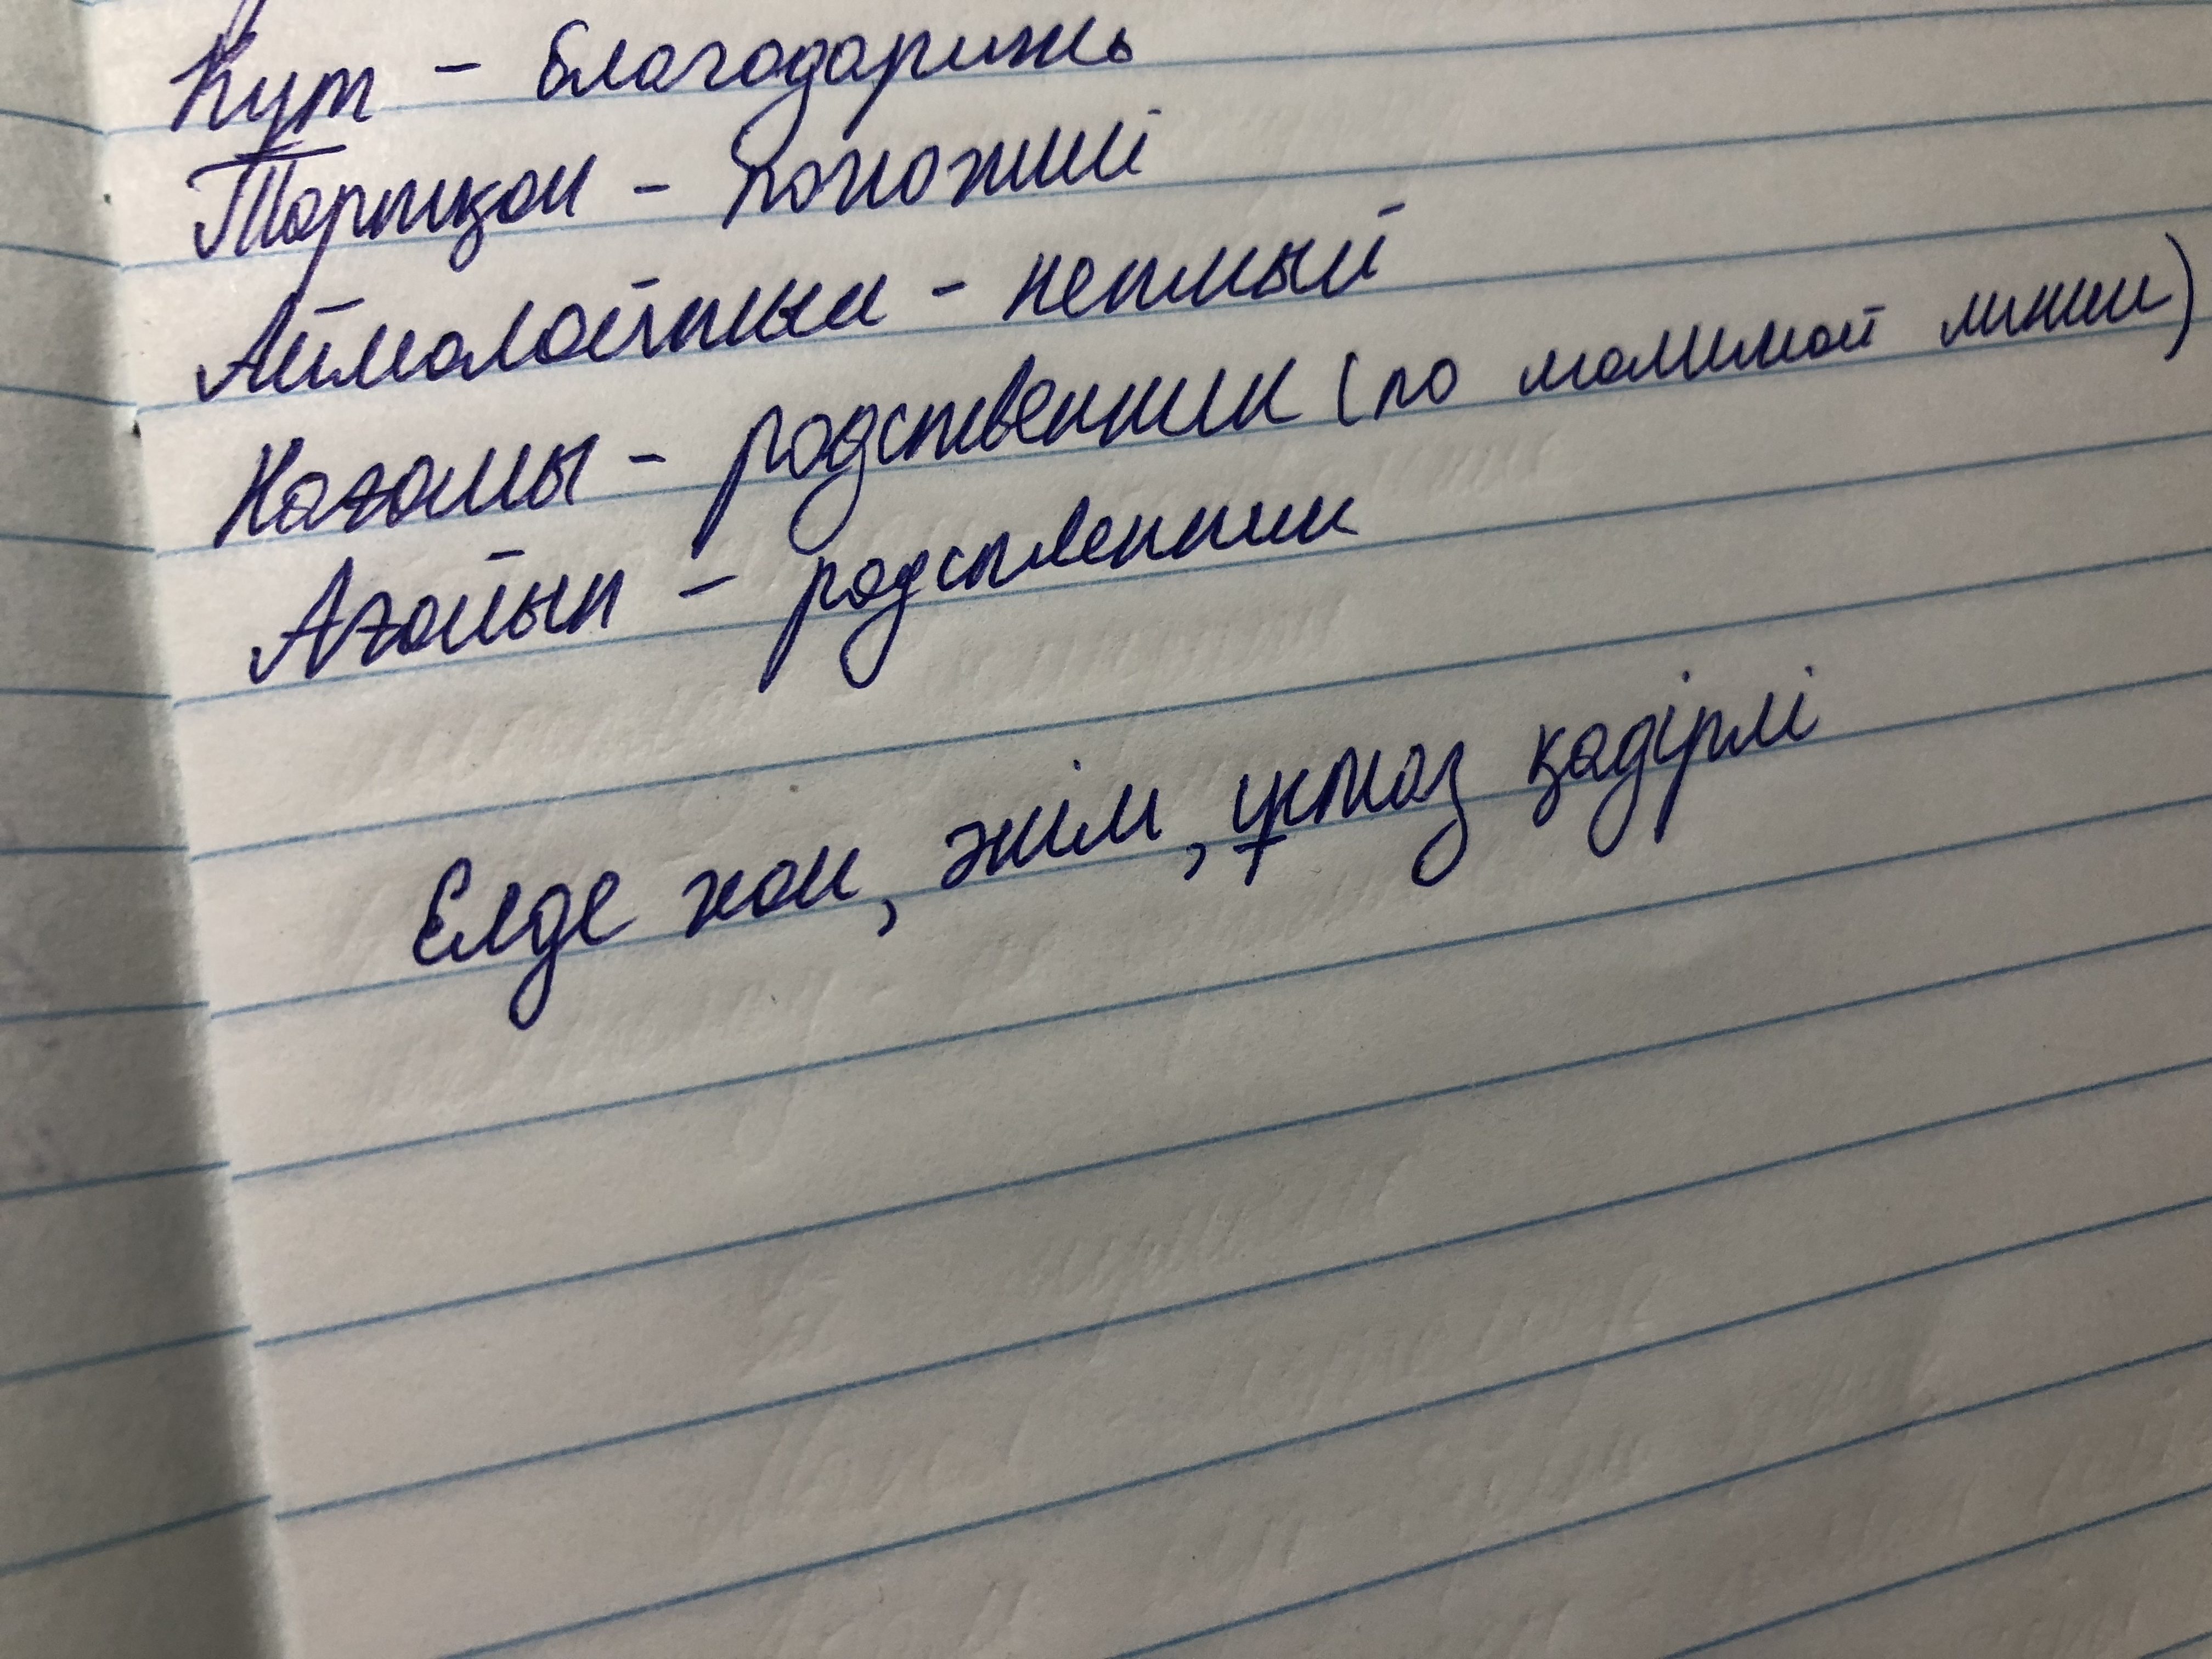 Құт – благодарижь
Тартқан – Похожий
Аймалайтын – нетмый
Нағашы – родственник (по мамимой линии)
Ағайын – родственник
Елде хан, әкім, ұстаз қадірлі